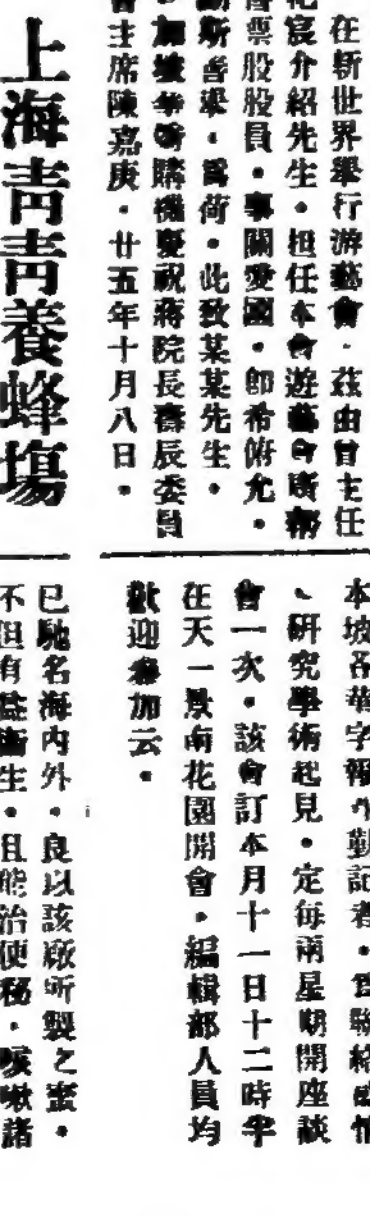 在新世界舉行游藝會．茲由曾主任
宸介紹先生．担任本會遊藝會
售票股股員．事關愛國．即希俯允．
斯善舉．爲荷．此致某某先生．
加坡華僑購機慶祝蔣院長壽辰委員
會主席陳嘉庚．廿五年十月八日．
本坡各華字報外勤記者．爲聯絡感情
、研究學術起見．定每兩星期開座談
會一次．該會訂本月十一日十二時半
在天一景南花園開會．編輯部人員均
歡迎參加云．
上海青青養蜂場
已馳名海內外．良以該廠所製之蜜．
不但有益衞生．且能治便秘．咳嗽諸